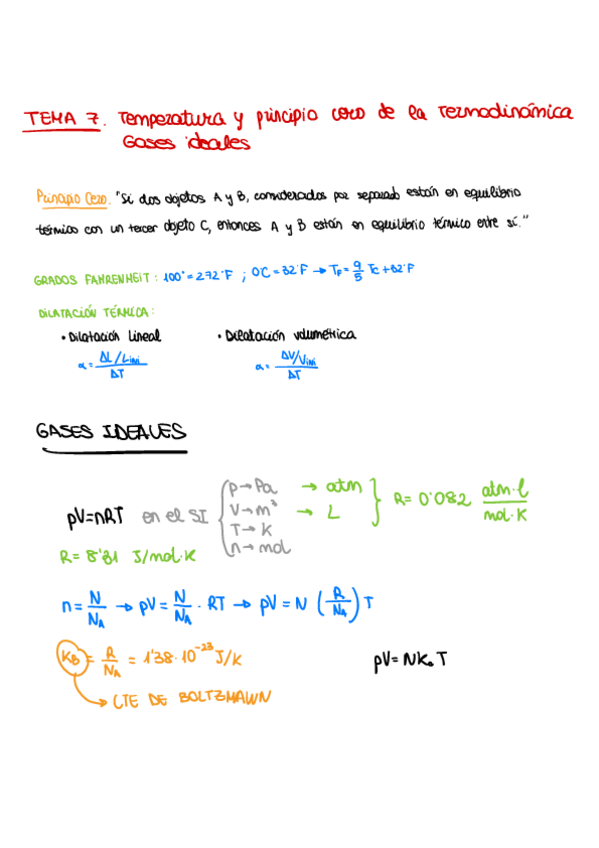 TEMA 7. Temperatura y principio cero de la Termodinámica
Gases ideales
Principio Cero. "Si dos objetos A y B, considerados por separado están en equilibrio
térmico con un tercer objeto C, entonces A y B están en equilibrio térmico entre sí."
GRADOS FAHRENHEIT: 100° = 272°F ; 0°C = 32°F → T_F = 9/5 Tc + 32°F
DILATACIÓN TÉRMICA:
• Dilatación lineal • Dilatación volumétrica
α = ΔL/Lini / ΔT α = ΔV/Vini / ΔT
GASES IDEALES
pV=nRT en el SI { p → Pa → atm } R= 0'082 atm·l / mol·K
V → m³ → L
T → K
n → mol
R= 8'31 J/mol·K
n = N/N_A → pV = N/N_A · RT → pV = N (R/N_A) T
K_B = R/N_A = 1'38·10⁻²³ J/K pV = NK_B T
→ CTE DE BOLTZMAWN